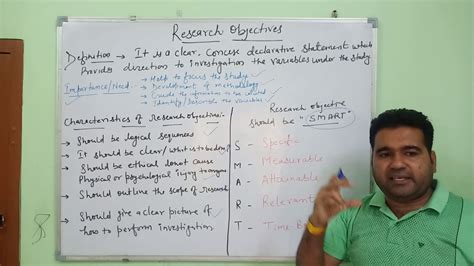 Research Objectives
Definition → It is a clear, Concise declarative statement which
Provides direction to investigation the variables under the study
Importance/Need → Help to focus the study
→ Development of methodology
→ Guide the information to be collected
→ Identify/Describe the variables
Characteristics of Research objectives:-
→ Should be logical sequences
→ It should be clear/what is to be done?
→ Should be ethical donot cause
Physical or psychological injury to anyone
→ Should outline the scope of research
→ Should give a clear picture of
how to perform investigation
Research objective
should be "SMART"
S - Specific
M - Measurable
A - Attainable
R - Relevant
T - Time